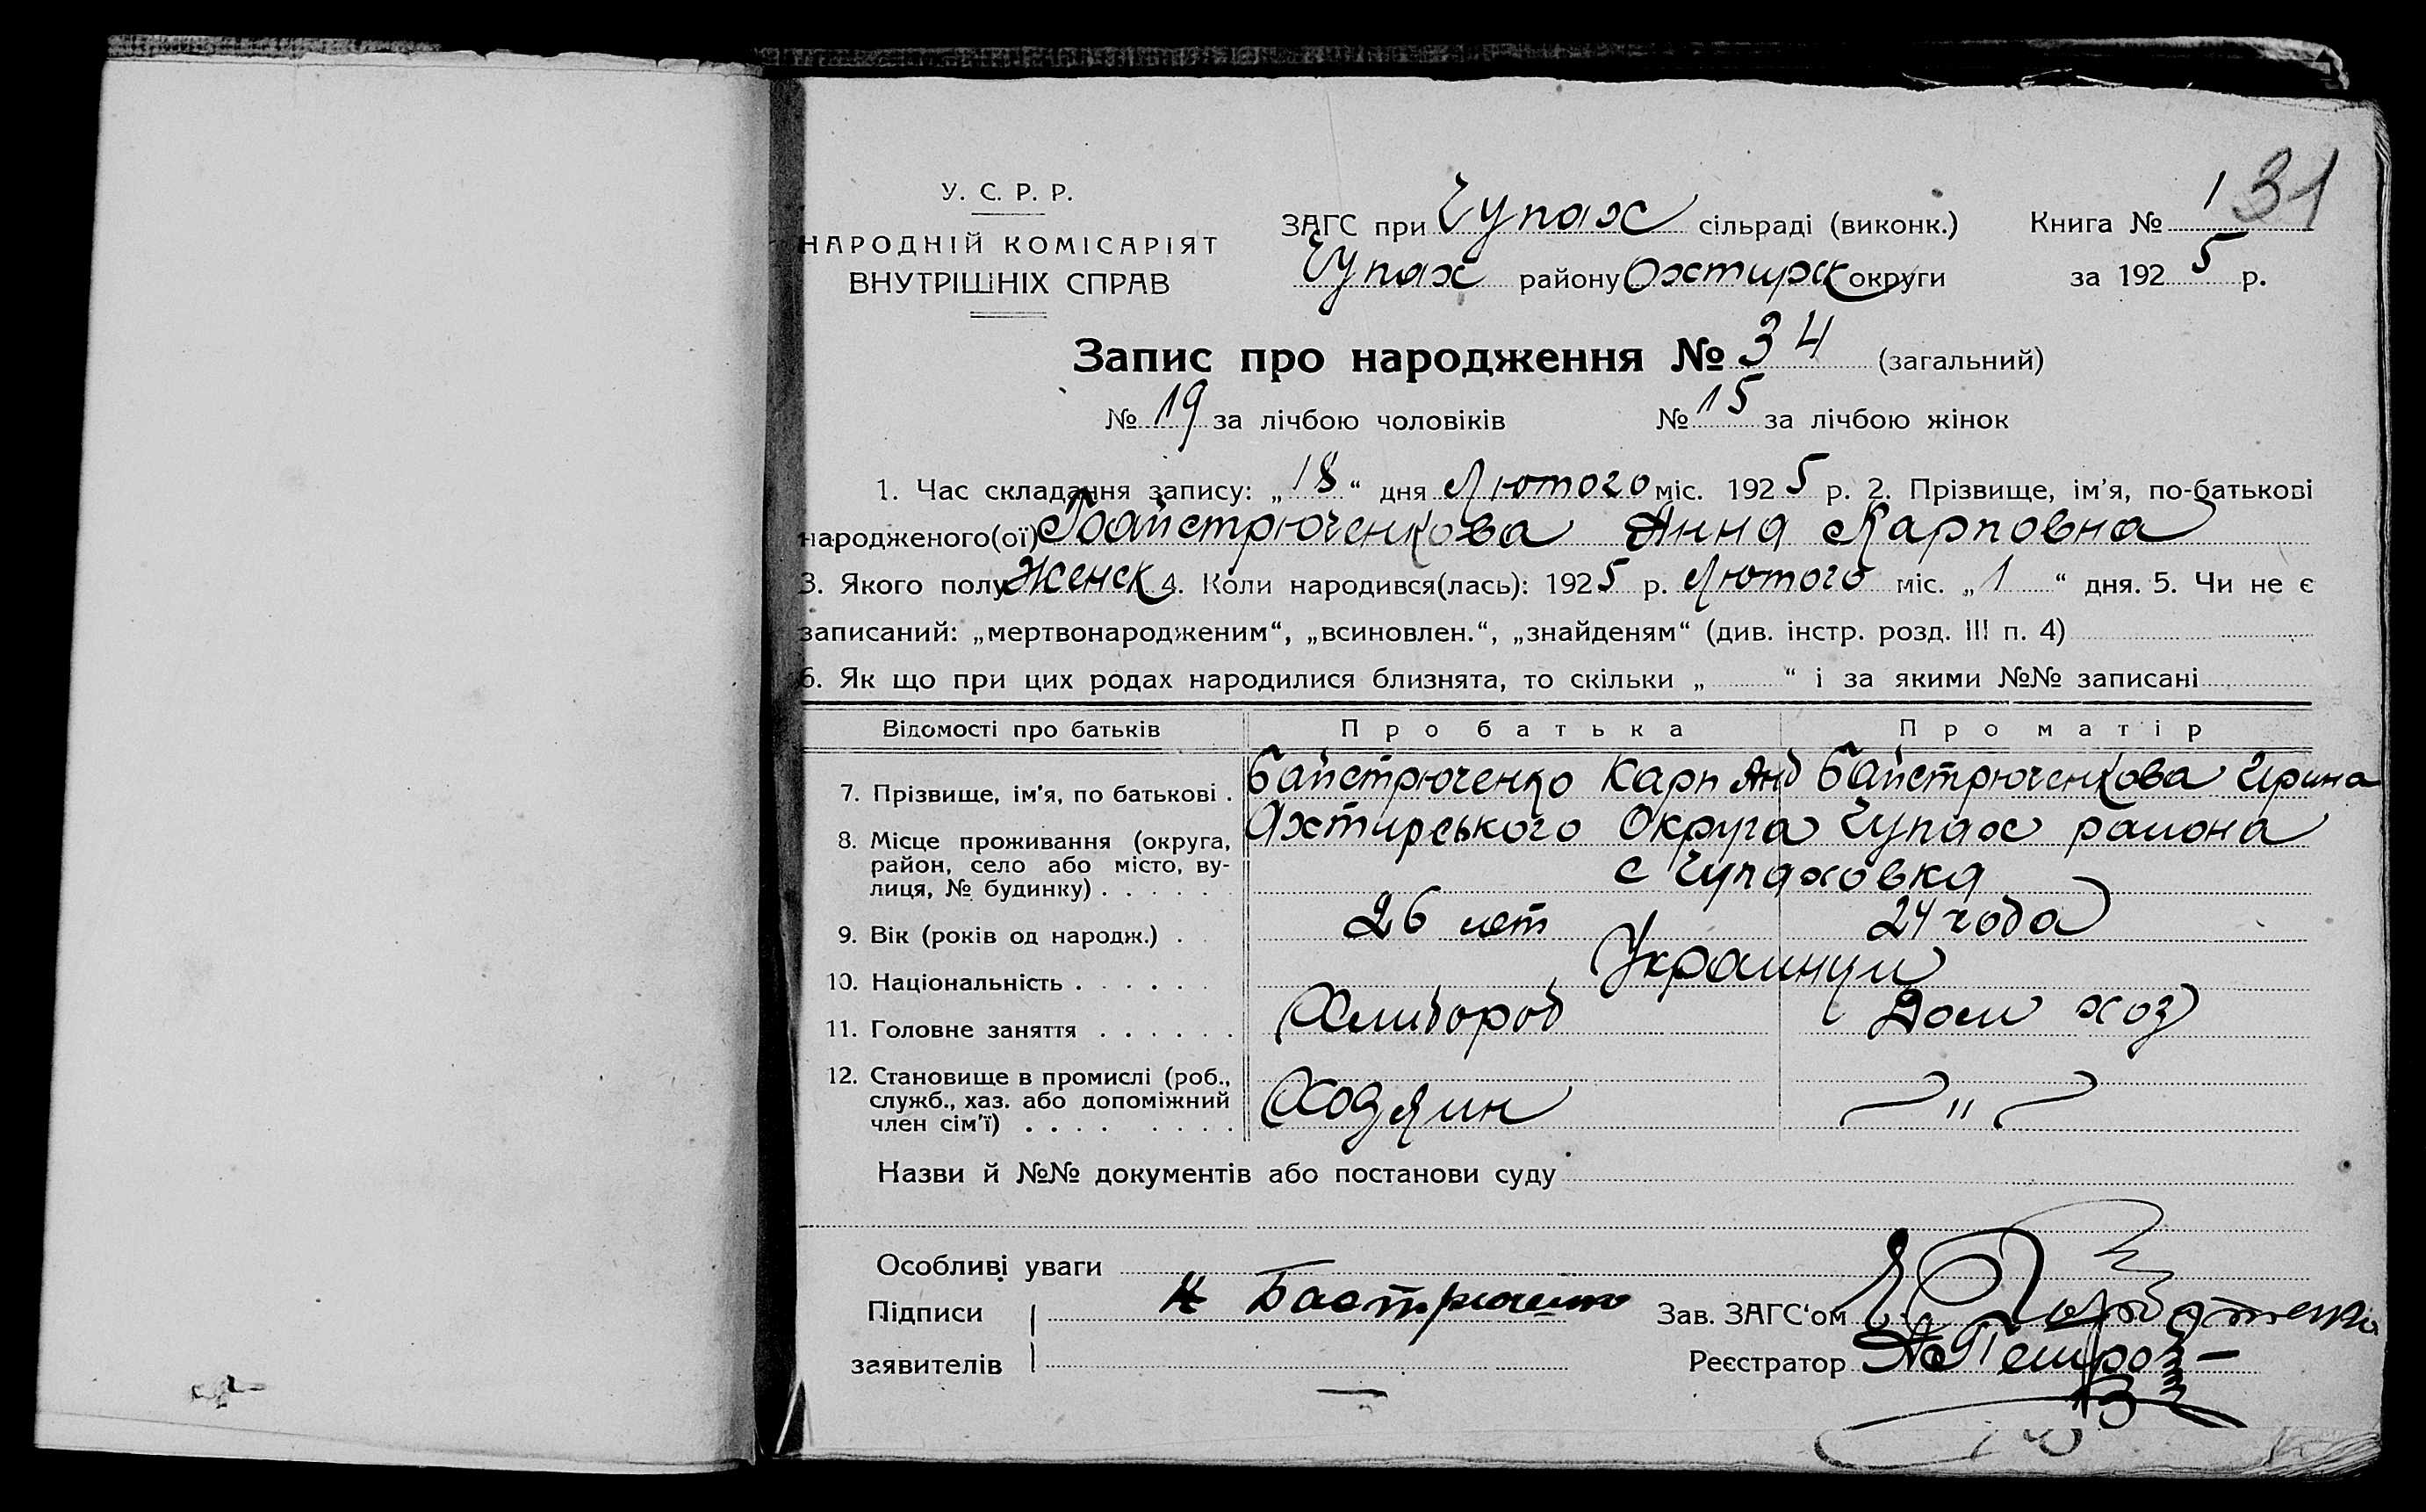 31
У. С. Р. Р.
НАРОДНІЙ КОМІСАРІЯТ
ВНУТРІШНІХ СПРАВ
ЗАГС при Чупах сільраді (виконк.) Книга № 1
Чупах району Охтирск округи за 1925 р.
Запис про народження № 34 (загальний)
№ 19 за лічбою чоловіків № 15 за лічбою жінок
1. Час складання запису: „18“ дня Лютого міс. 1925 р. 2. Прізвище, ім’я, по-батькові
народженого(ої) Байстрюченкова Анна Карповна
3. Якого полу Женск 4. Коли народився(лась): 1925 р. Лютого міс. „1“ дня. 5. Чи не є
записаний: „мертвонародженим“, „всиновлен.“, „знайденям“ (див. інстр. розд. III п. 4)
6. Як що при цих родах народилися близнята, то скільки „ “ і за якими №№ записані
Відомості про батьків Про батька Про матір
7. Прізвище, ім’я, по батькові . Байстрюченко Карп Анд Байстрюченкова Ирина
8. Місце проживання (округа, Охтирського Округа Чупах района
район, село або місто, ву-
лиця, № будинку) . . . . . с Чупаховка
9. Вік (років од народж.) . 26 лет 24 года
10. Національність . . . . . . Украинци
11. Головне заняття . . . . . . Хлибороб Дом хоз
12. Становище в промислі (роб.,
служб., хаз. або допоміжний Хозяин "
член сім’ї) . . . . . . . .
Назви й №№ документів або постанови суду
Особливі уваги
Підписи К Бастрюченко Зав. ЗАГС‘ом
заявителів Реєстратор